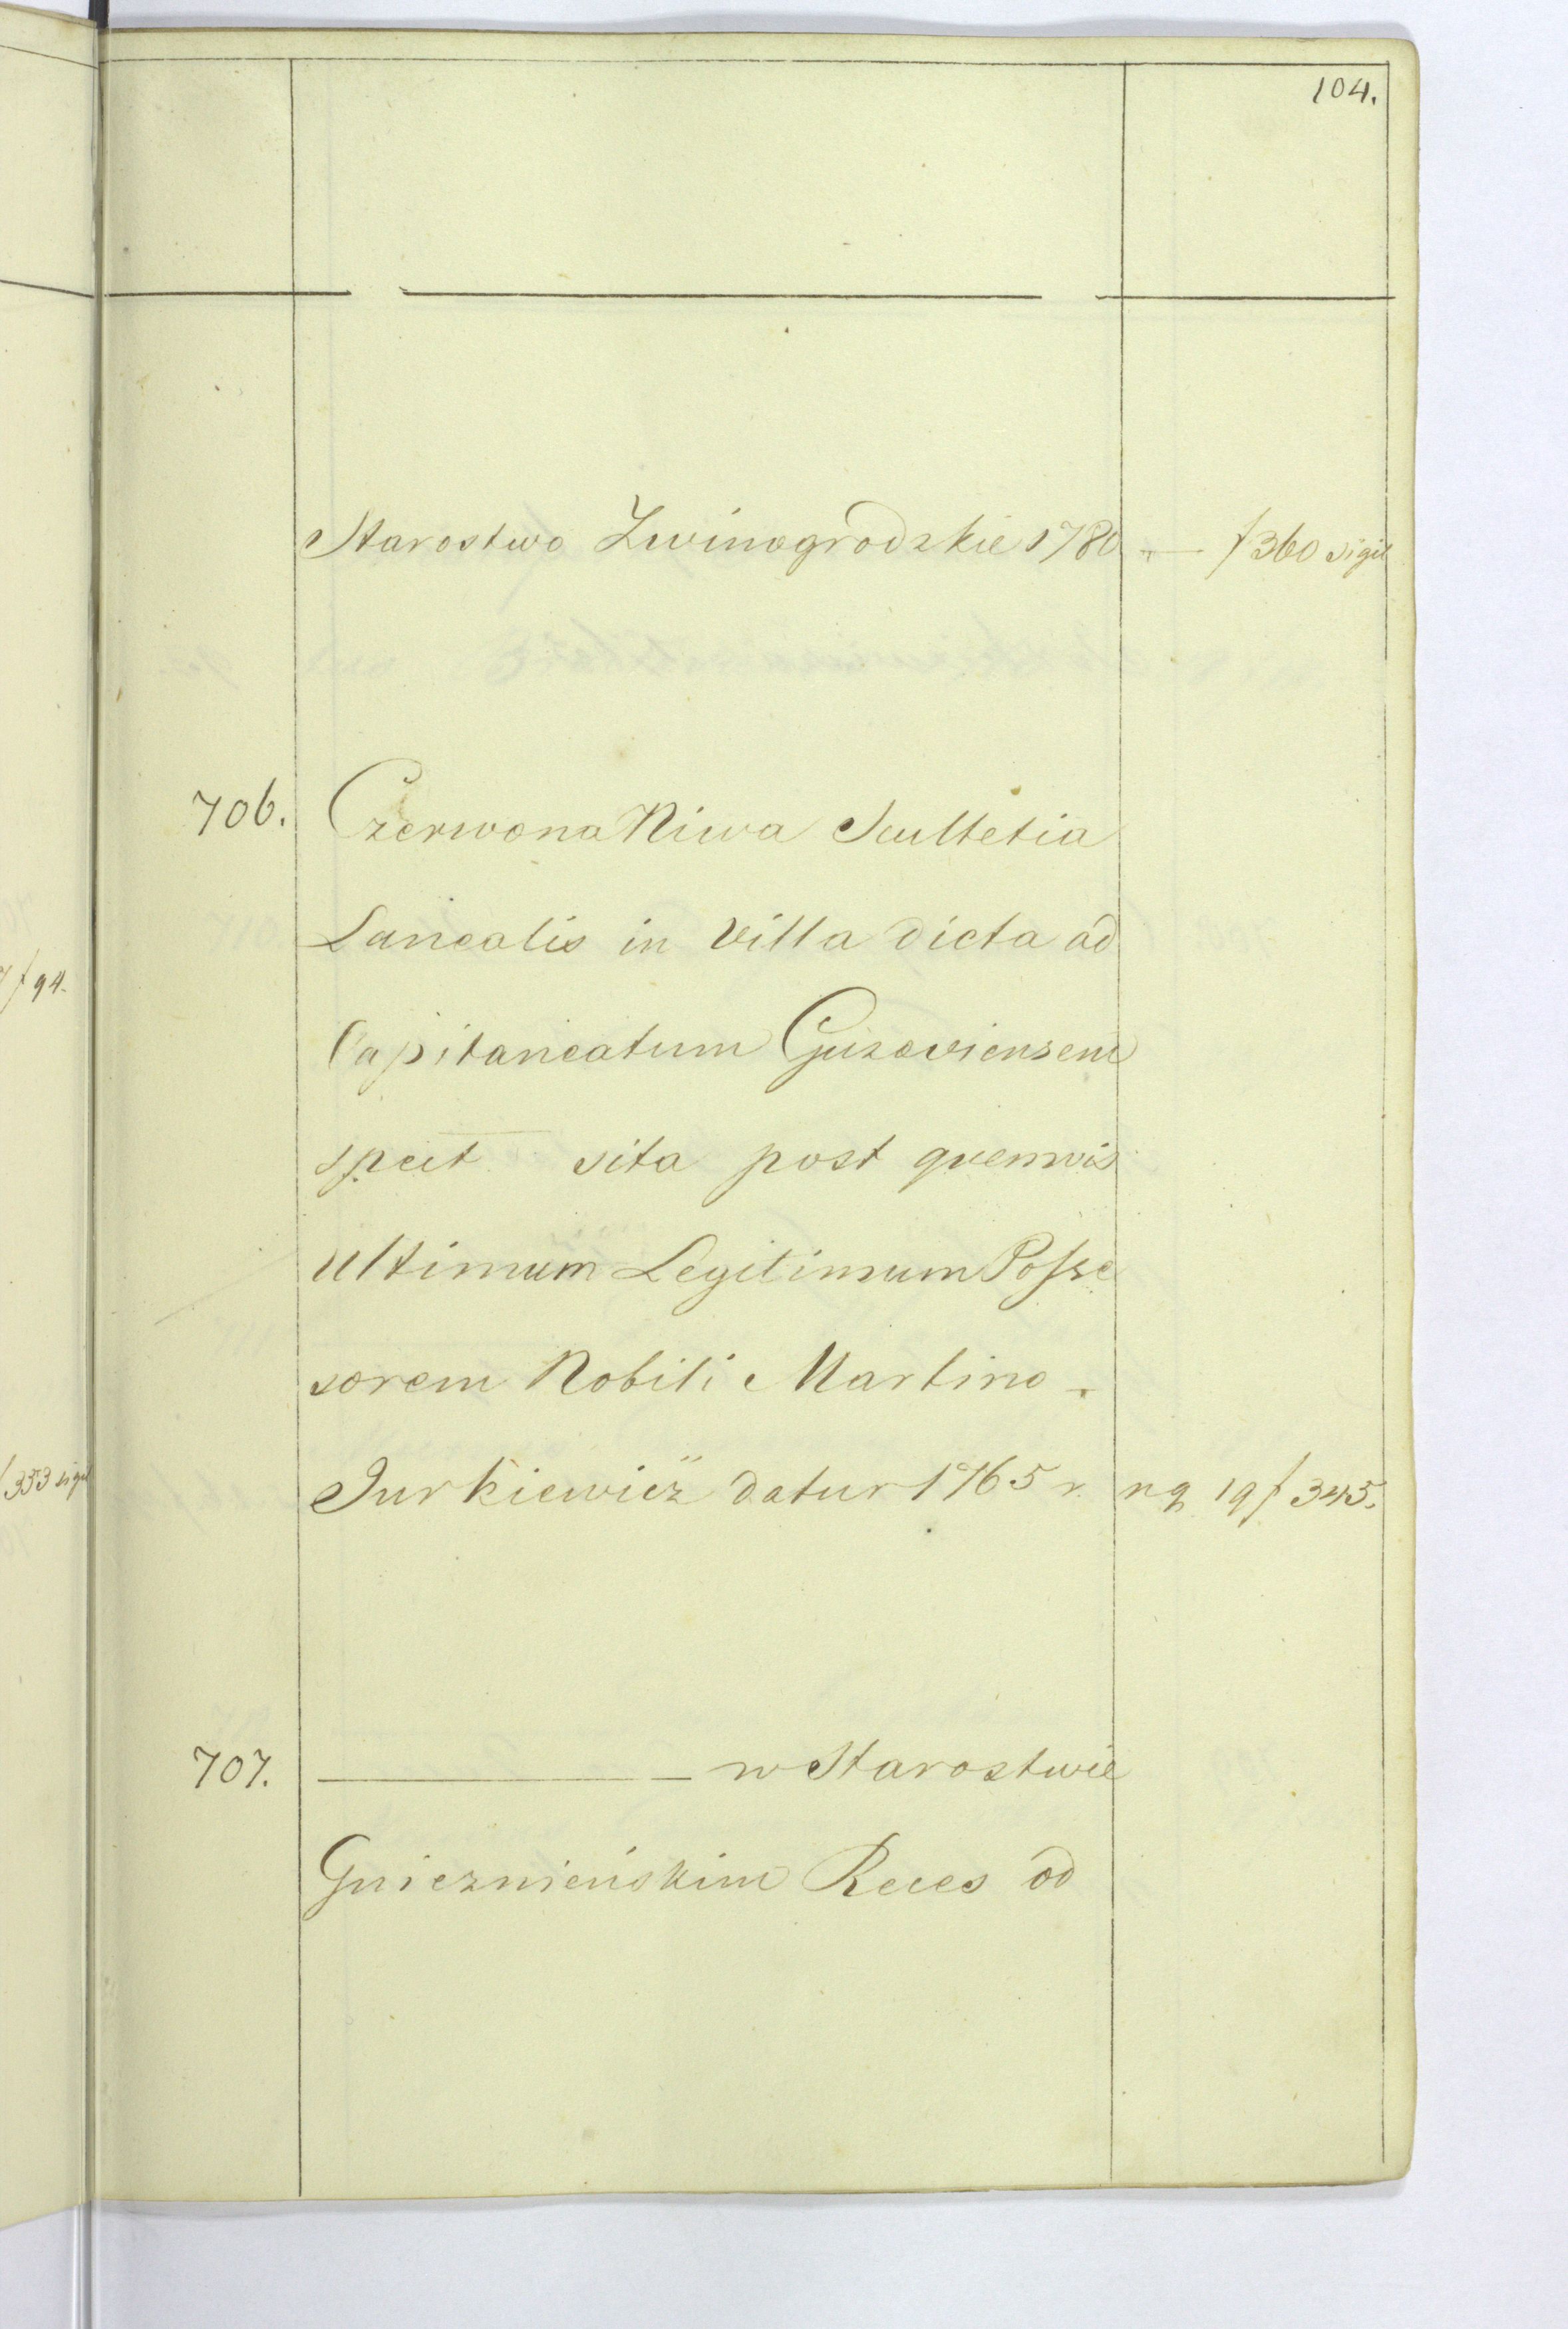 104.
Starostwo Zwinogrodzkie 1780 „ — f 360 sigil
706. Czerwona Niwa Scultetia
Lanealis in Villa dicta ad
Capitaneatum Guzoviensem
spect sita post quemvis
Ultimum Legitimum Posse
sorem Nobili Martino
Jurkiewicz datur 1765 r. n 19 f 345.
707. — w Starostwie
Gnieznieńskim Reces od
f 94.
f 353 sigil